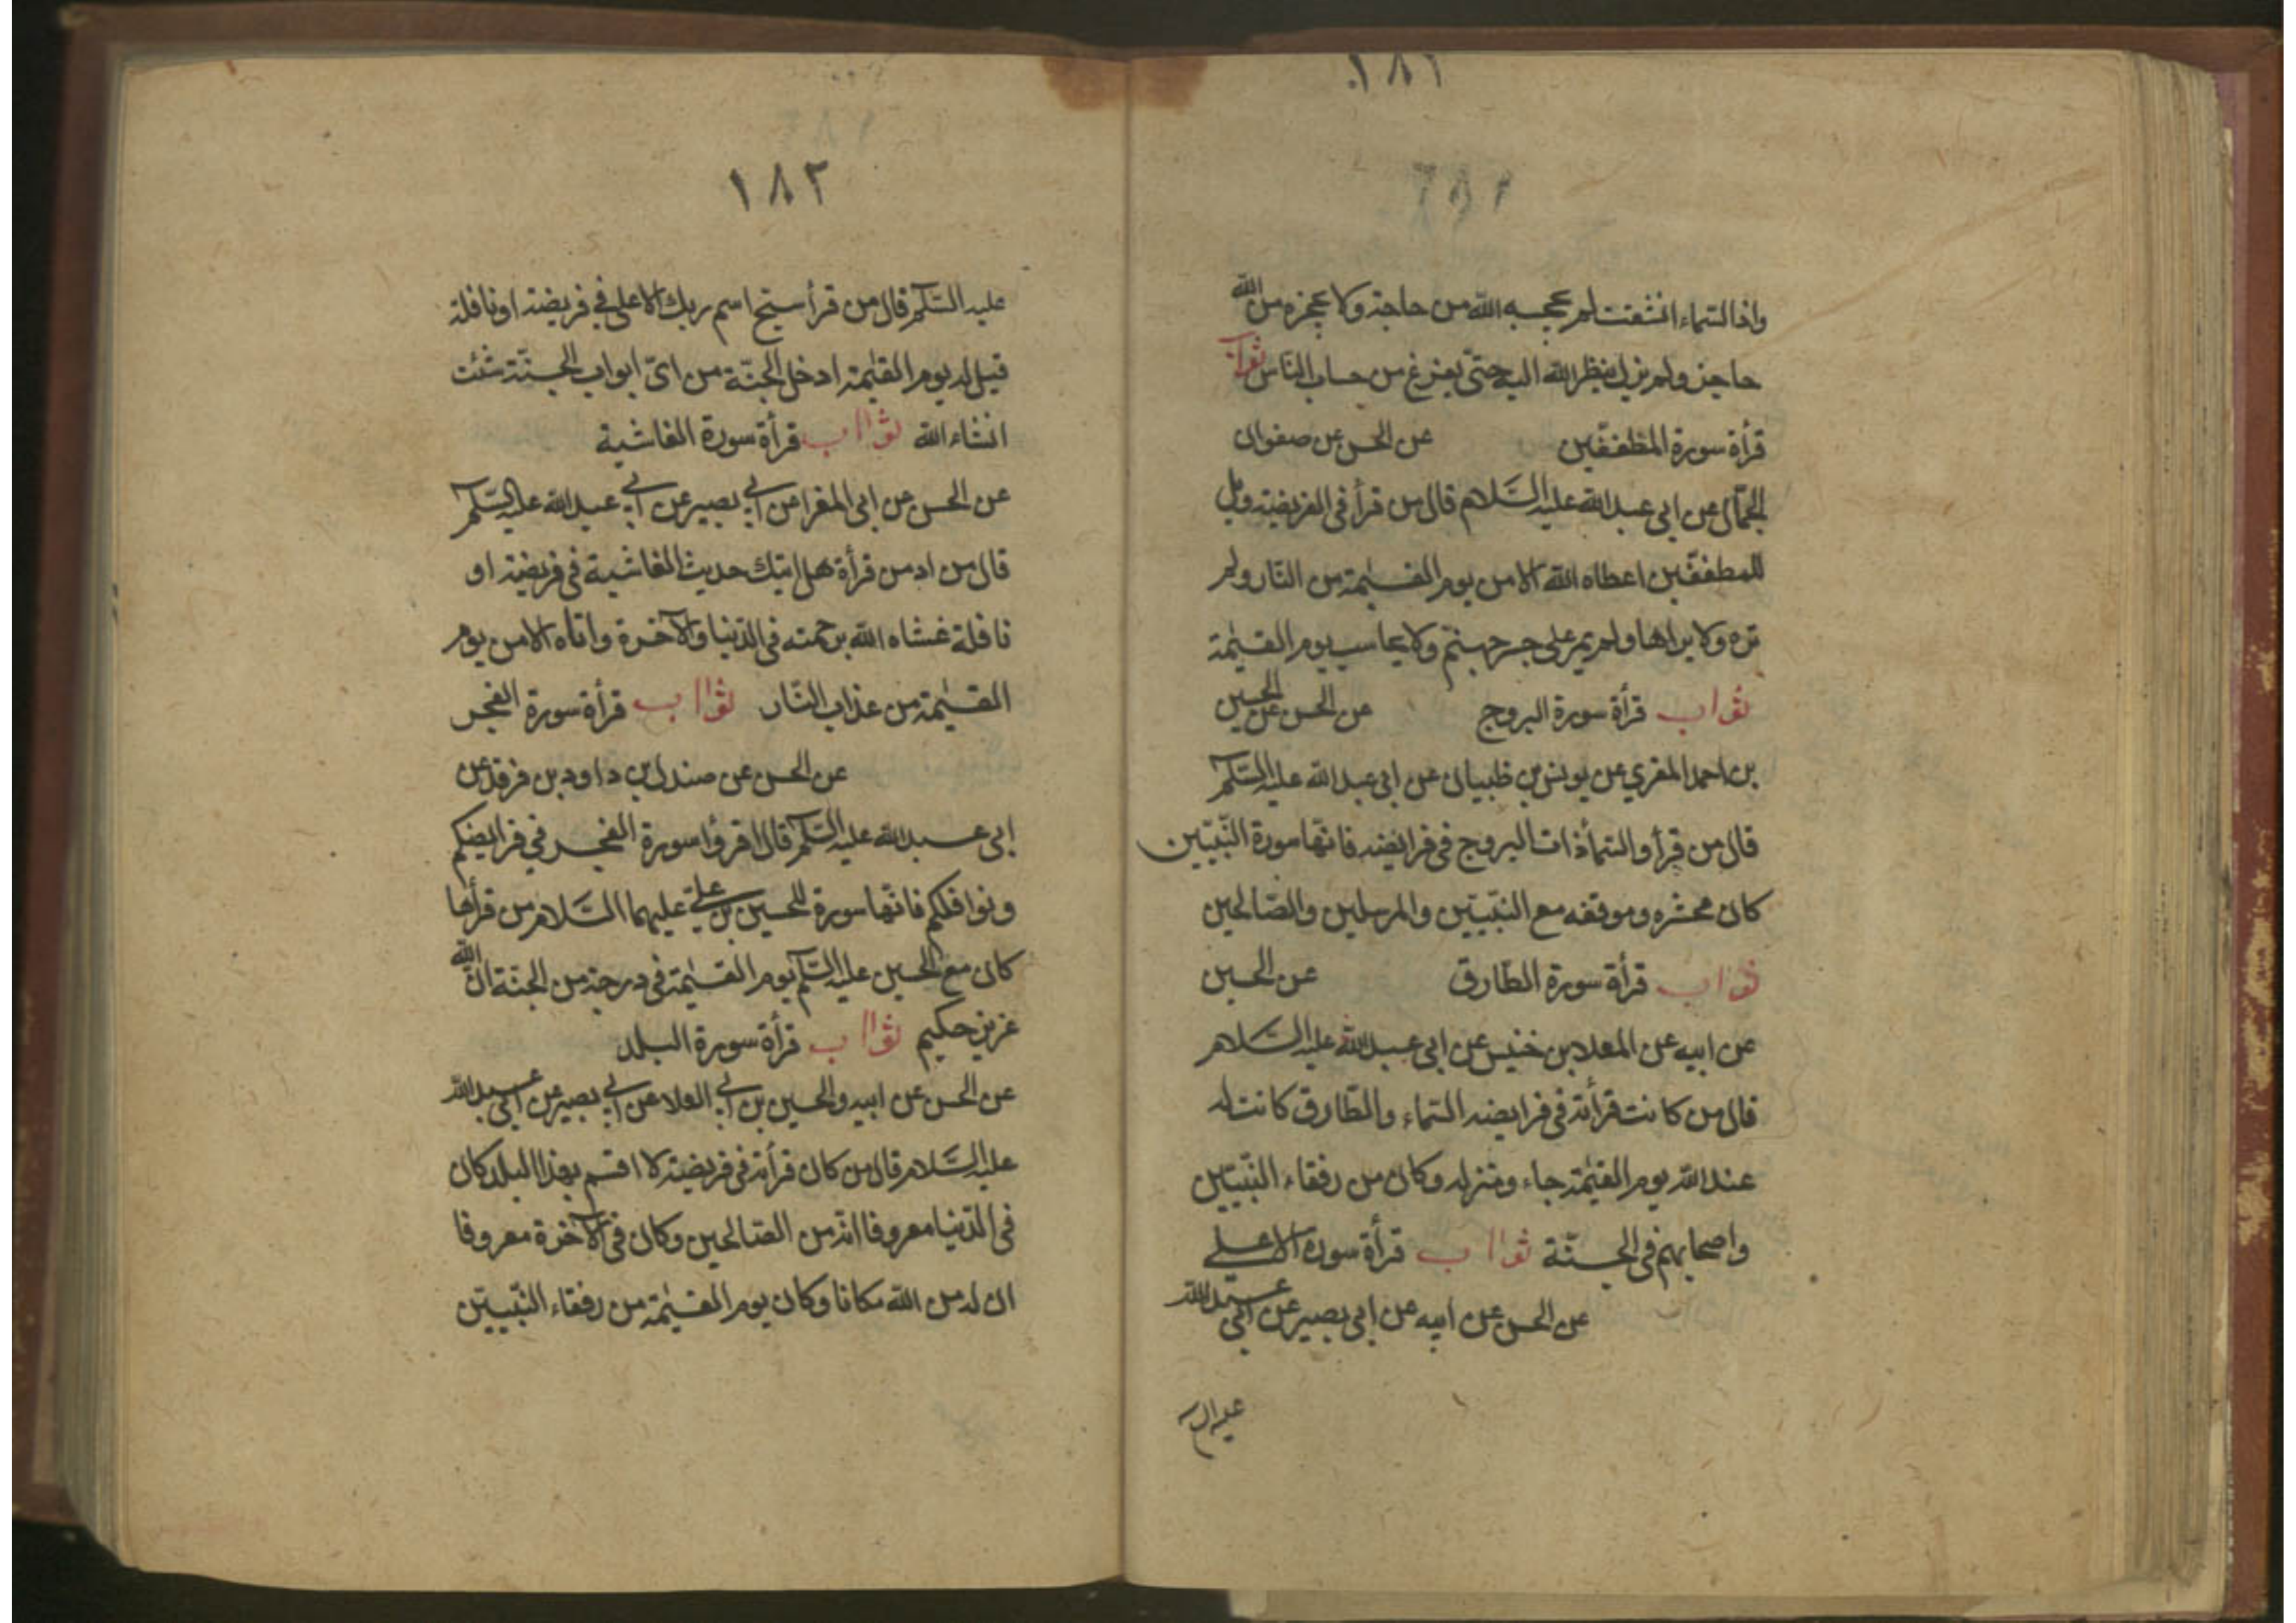 ١٨١
واذا السماء انشقت لم يحجبه الله من حاجة ولا يحجزه من الله
حاجز ولم يزل ينظر الله اليه حتّى يفرغ من حساب النّاس ثواب
قرأة سورة المطففّين عن الحسن عن صفوان
الجمّال عن ابي عبد الله عليه السّلام قال من قرأ في الفريضة ويل
للمطففّين اعطاه الله الامن يوم القيٰمة من النّار ولم
تره ولا يراها ولم يمر على جسر جهنّم ولا يحاسب يوم القيٰمة
ثواب قرأة سورة البروج عن الحسن عن الحسين
بن احمد المقري عن يونس بن ظبيان عن ابي عبد الله عليه السّلم
قال من قرأ والسّمأ ذات البروج في فرائضه فانّها سورة النّبيّين
كان محشره وموقفه مع النّبيّين والمرسلين والصّالحين
ثواب قرأة سورة الطّارق عن الحسين
عن ابيه عن المعلا بن خنيس عن ابي عبد الله عليه السّلام
قال من كانت قرأته في فرايضه السّماء والطّارق كانت له
عند الله يوم القيٰمة جاء ومنزله وكان من رفقاء النّبيّين
واصحابهم في الجنّة ثواب قرأة سورة الاعلى
عن الحسن عن ابيه عن ابي بصير عن ابي عبد الله
عليه الس
١٨٢
عليه السّلم قال من قرأ سبّح اسم ربك الاعلى في فريضة او نافلة
قيل له يوم القيٰمة ادخل الجنّة من ايّ ابواب الجنّة شئت
انشاء الله ثواب قرأة سورة الغاشية
عن الحسن عن ابي المغرا عن ابي بصير عن ابي عبد الله عليه السّلم
قال من ادمن قرأة هل اتيك حديث الغاشية في فريضة او
نافلة غشاه الله برحمته في الدّنيا والآخرة واتاه الامن يوم
القيٰمة من عذاب النّار ثواب قرأة سورة الفجر
عن الحسن عن صندل بن داود بن فرقد عن
ابي عبد الله عليه السّلم قال اقرؤا سورة الفجر في فرايضكم
ونوافلكم فانّها سورة للحسين بن عليّ عليهما السّلام من قرأها
كان مع الحسين عليه السّلم يوم القيٰمة في درجة من الجنّة انّ الله
عزيز حكيم ثواب قرأة سورة البلد
عن الحسن عن ابيه والحسين بن ابي العلا عن ابي بصير عن ابي عبد الله
عليه السّلام قال من كان قرأته في فريضة لا اقسم بهذا البلد كان
في الدّنيا معروفا انّه من الصّالحين وكان في الآخرة معروفا
ان له من الله مكانا وكان يوم القيٰمة من رفقاء النّبيّين